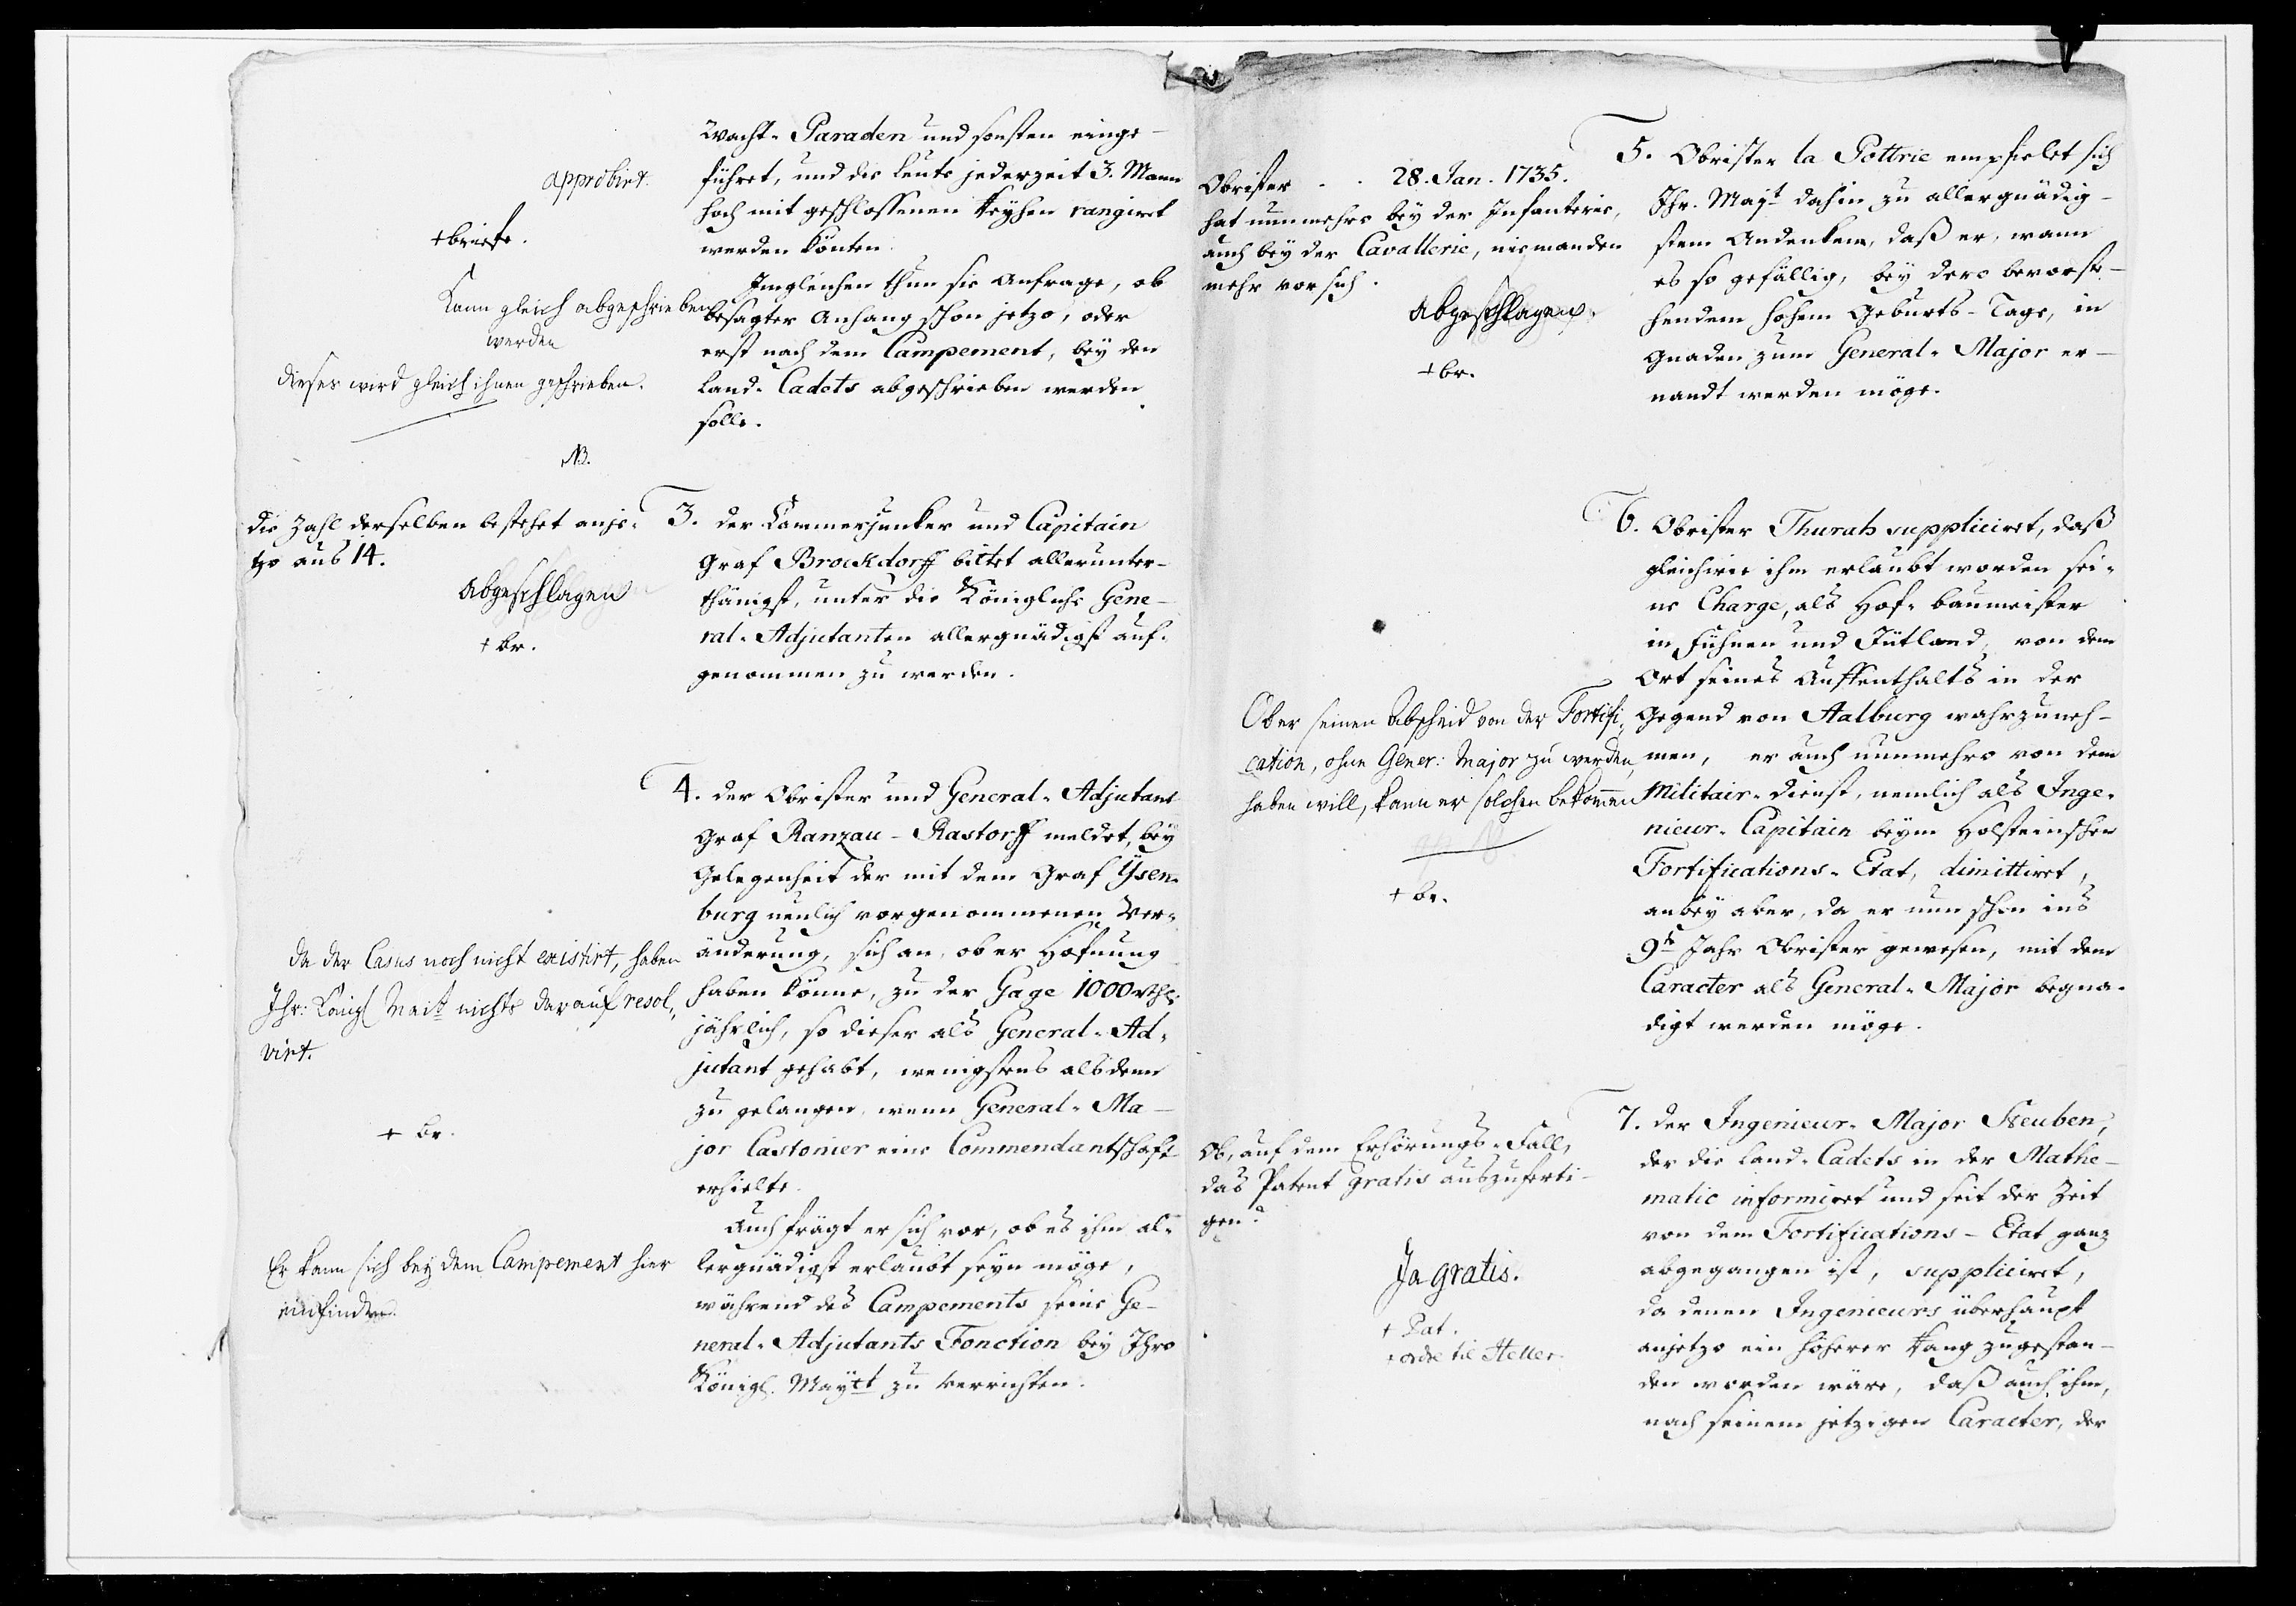 Wacht-Paraden und sonsten einge-
führet, und die Leute jederzeit 3. Mann
hoch mit geschlossenen Reyhen rangiret
werden könten.
approbirt.
+briefe.
Imgleichen thun sie Anfrage, ob
besagter Anhang schon jetzo, oder
erst nach dem Campement, bey den
Land-Cadets abgeschrieben werden
solle.
Kann gleich abgeschrieben
werden
dieses wird gleich ihnen geschrieben.
NB.
3. der Kammerjunker und Capitain
Graf Brockdorff bittet allerunter-
thänigst, unter die Königliche Gene-
ral-Adjutanten allergnädigst auf-
genommen zu werden.
die Zahl derselben bestehet anje-
tzo aus 14.
Abgeschlagen
+ br.
4. der Obrister und General-Adjutant
Graf Ranzau-Rastorff meldet, bey
Gelegenheit der mit dem Graf Ysen-
burg neulich vorgenommenen Ver-
änderung, sich an, ob er Hofnung
haben könne, zu der Gage 1000 rthl.
jährlich, so dieser als General-Ad-
jutant gehabt, wenigstens alsdenn
zu gelangen, wenn General-Ma-
jor Castonier eine Commendantschaft
erhielte.
da der Casus noch nicht existirt, haben
Ihr: Königl Mait nichts darauf resol,,
virt.
+ br.
Auch frägt er sich vor, ob es ihm al-
lergnädigst erlaubt seyn möge,
während des Campements seine Ge-
neral-Adjutants Fonction bey Ihro
Königl. Maytt zu verrichten.
Er kann sich bey dem Campement hier
einfinden.
5. Obrister la Pottrie empfielet sich
Ihr. Mayt dahin zu allergnädig-
stem Andenken, daß er, wann
es so gefällig, bey dero bevorste-
hendem hohem Geburts-Tage, in
Gnaden zum General-Major er-
nandt werden möge.
Obrister . . 28. Jan. 1735.
hat nunmehro bey der Infanterie,
auch bey der Cavallerie, niemanden
mehr vor sich.
Abgeschlagen.
+br.
6. Obrister Thurah suppliciret, daß
gleichwie ihm erlaubt worden sei-
ne Charge, als Hof-baumeister
in Fühnen und Jütland, von dem
Ort seines Auffenthalts in der
Gegend von Aalburg wahrzuneh-
men, er auch nunmehro von dem
Militair-dienst, nemlich als Inge-
nieur-Capitain beym Holsteinschen
Fortifications-Etat, dimittiret,
anbey aber, da er nun schon ins
9te Jahr Obrister gewesen, mit dem
Caracter als General-Major begna-
digt werden möge.
Ob er seinen Abscheid von der Fortifi,,
cation, ohne Gener: Major zu werden,
haben will, kann er solchen bekommen
+ br.
7. der Ingenieur-Major Steuben,
der die Land-Cadets in der Mathe-
matic informiret und seit der Zeit
von dem Fortifications-Etat ganz
abgegangen ist, suppliciret,
da denen Ingenieurs überhaupt
anjetzo ein höherer Rang zugestan-
den worden wäre, daß auch ihm,
nach seinem jetzigen Caracter, der
Ob, auf dem Erhörungs-Fall,
das Patent gratis auszuferti-
gen?
Ja gratis.
+ Pat.
+ ordre til Heller